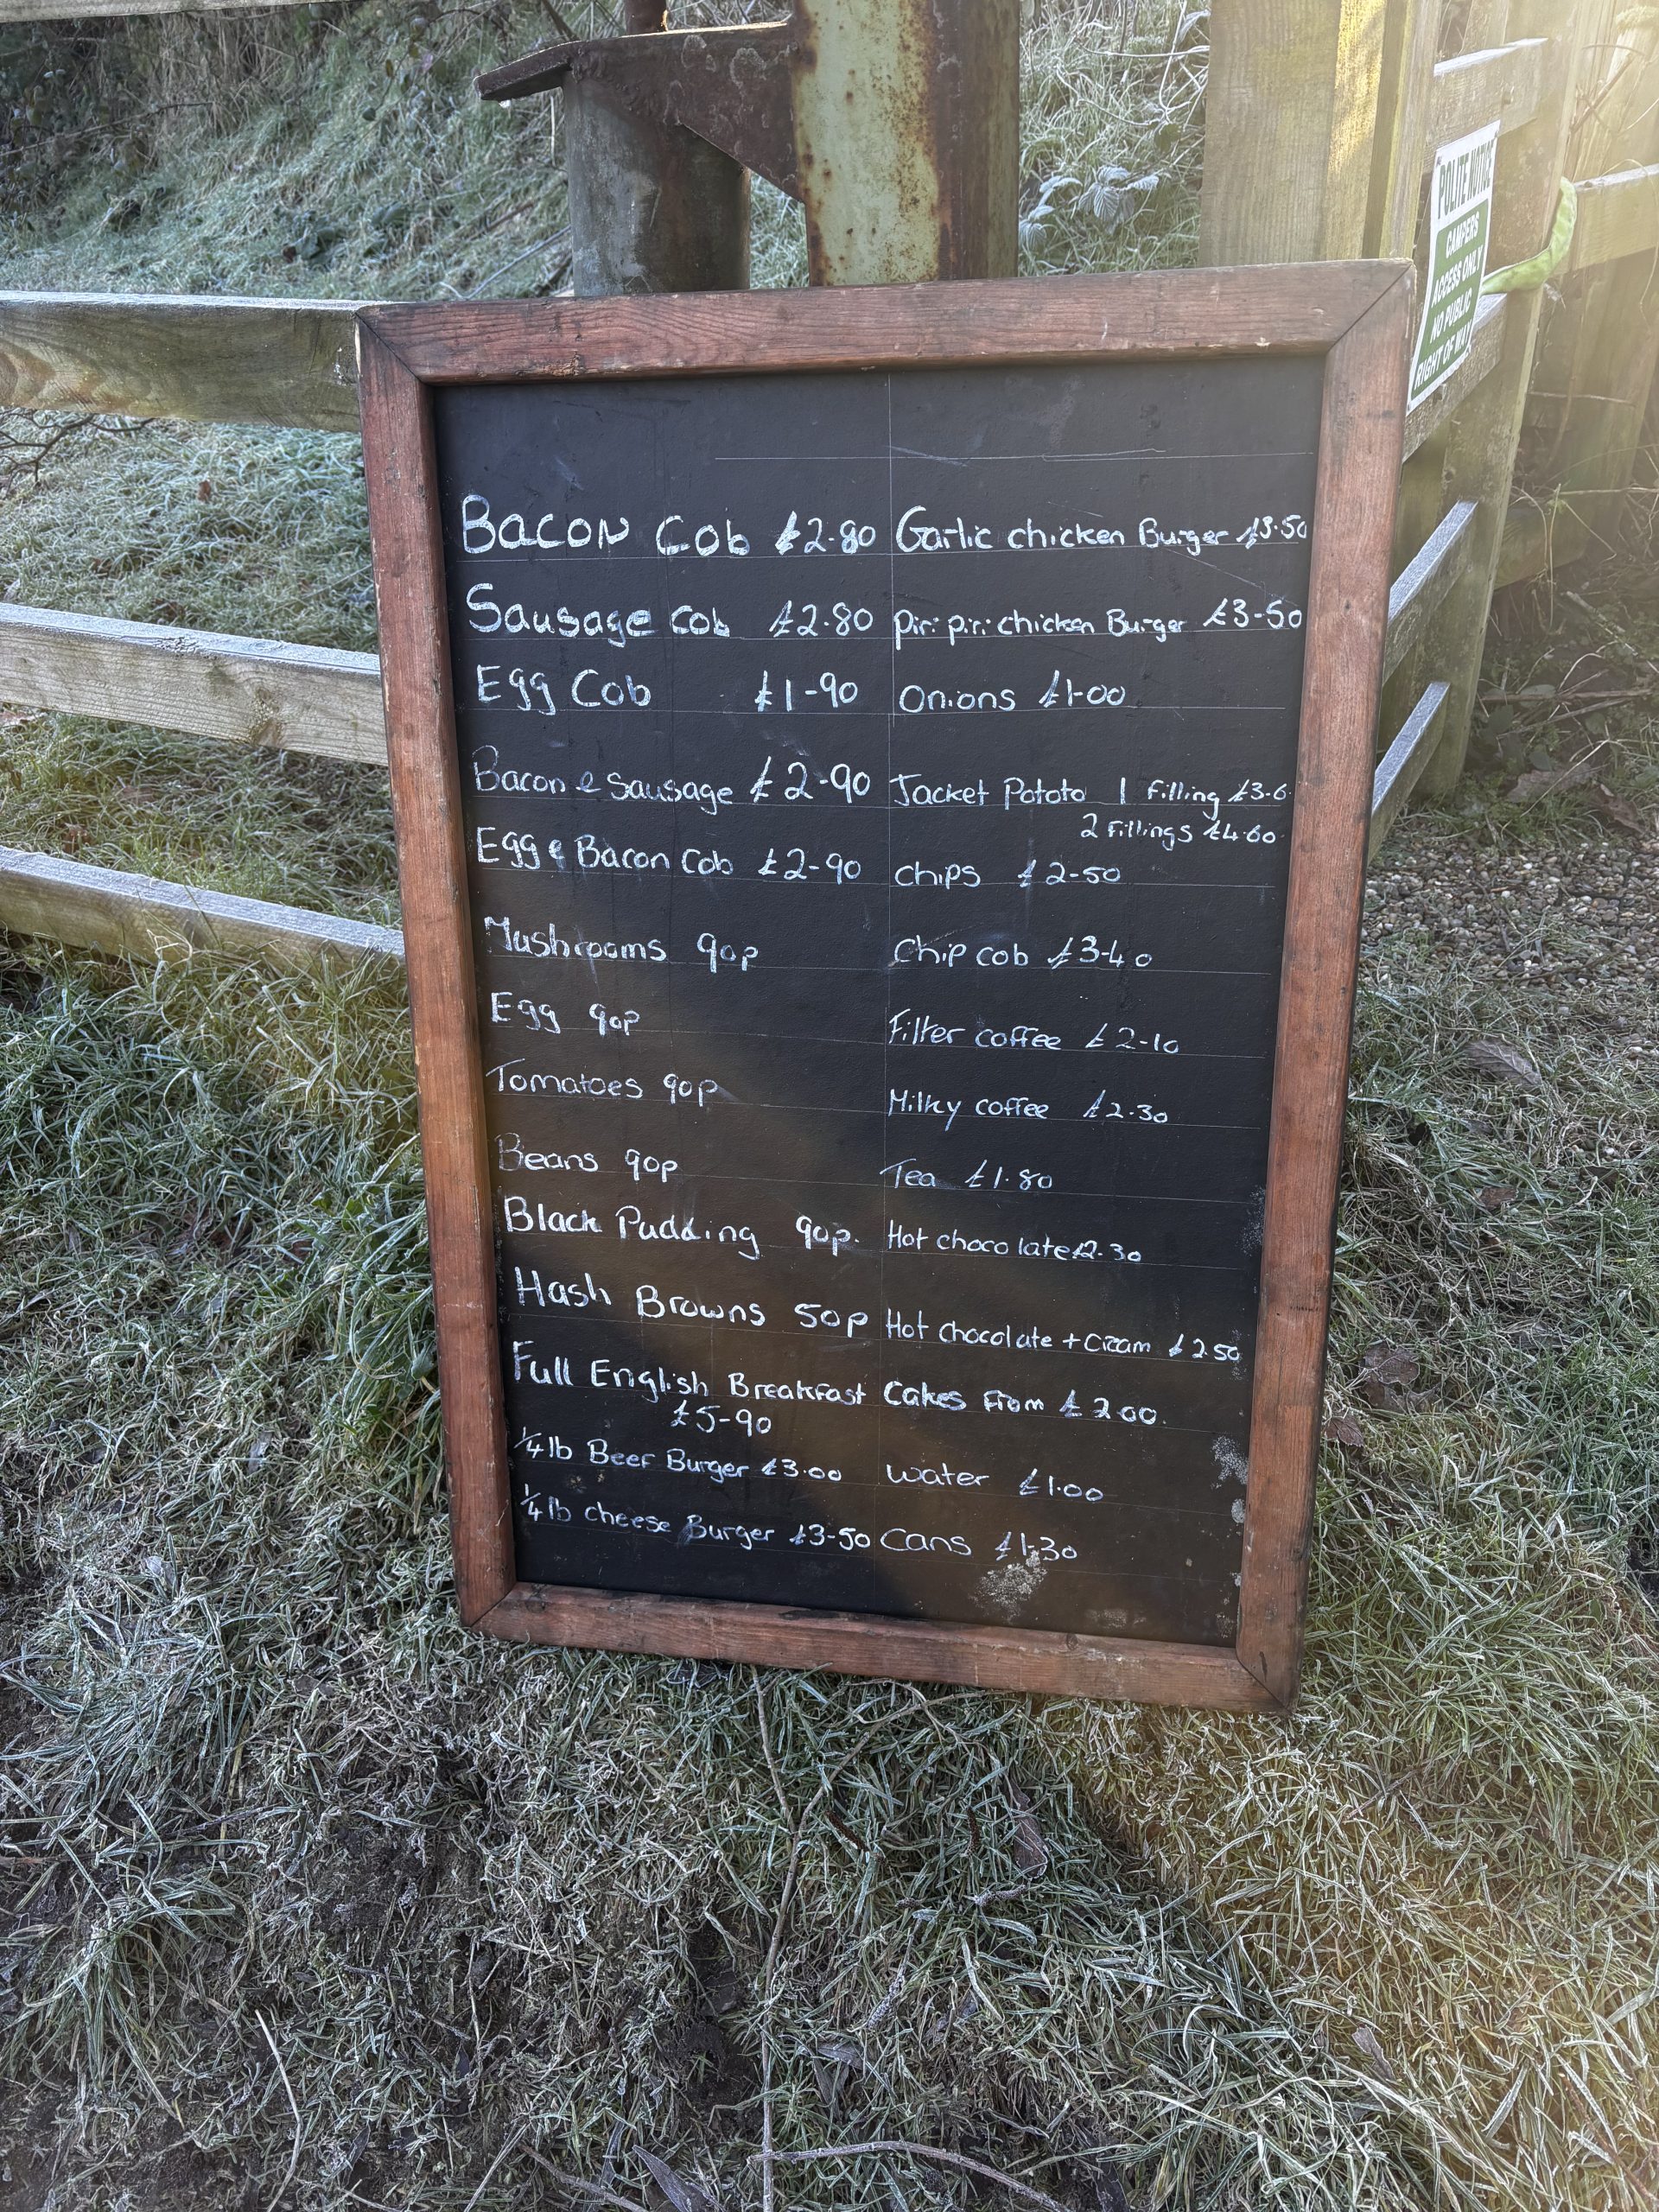 POLITE NOTICE
CAMPERS
ACCESS ONLY
NO PUBLIC
RIGHT OF WAY
Bacon Cob £2.80
Sausage Cob £2.80
Egg Cob £1-90
Bacon & Sausage £2-90
Egg & Bacon Cob £2-90
Mushrooms 90p
Egg 90p
Tomatoes 90p
Beans 90p
Black Pudding 90p.
Hash Browns 50p
Full English Breakfast
£5-90
1/4 lb Beef Burger £3.00
1/4 lb Cheese Burger £3-50
Garlic chicken Burger £3.50
Piri piri chicken Burger £3-50
Onions £1-00
Jacket Potato 1 Filling £3.6
2 Fillings £4.60
Chips £2-50
Chip cob £3-40
Filter coffee £2-10
Milky coffee £2.30
Tea £1.80
Hot chocolate £2.30
Hot chocolate + Cream £2.50
Cakes From £2.00.
Water £1.00
Cans £1.30